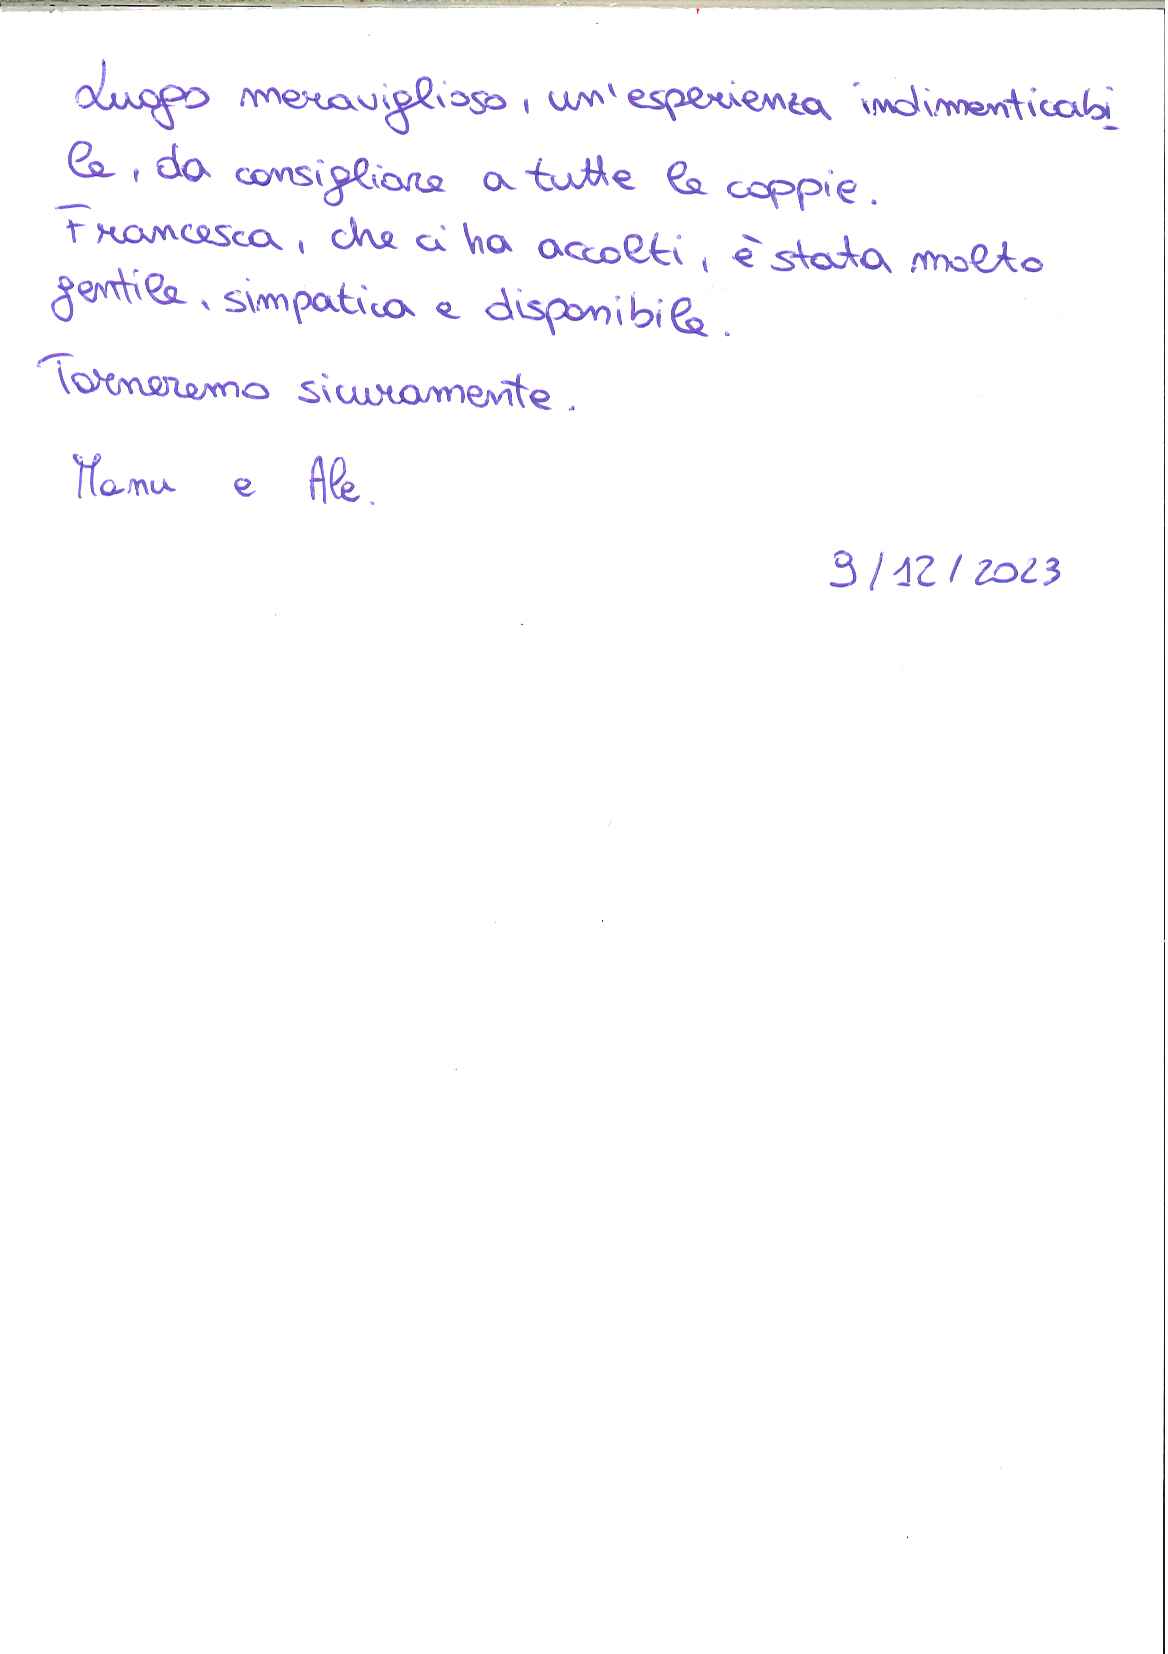 Luogo meraviglioso, un'esperienza indimenticabi
le, da consigliare a tutte le coppie.
Francesca, che ci ha accolti, è stata molto
gentile, simpatica e disponibile.
Torneremo sicuramente.
Manu e Ale.
9/12/2023